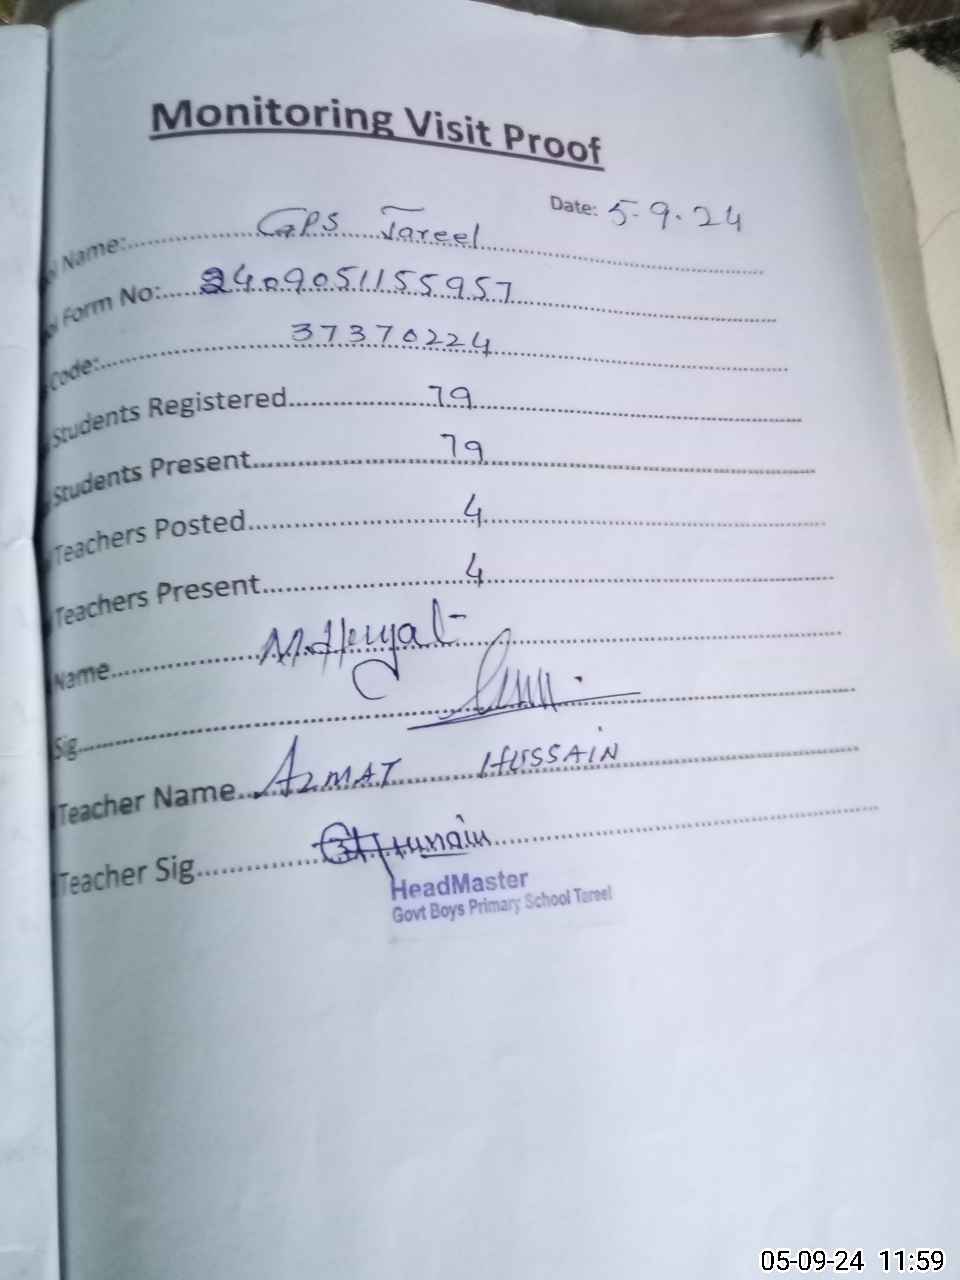 Monitoring Visit Proof
Date: 5-9-24
Name:..............GPS Tareel
Form No:.....2409051155957
Code:..............37370224
Students Registered..............79
Students Present..............79
Teachers Posted..............4
Teachers Present..............4
Name..............M.
Sig..............
Teacher Name..AZMAT HUSSAIN
Teacher Sig..............
HeadMaster
Govt Boys Primary School Tareel
05-09-24 11:59